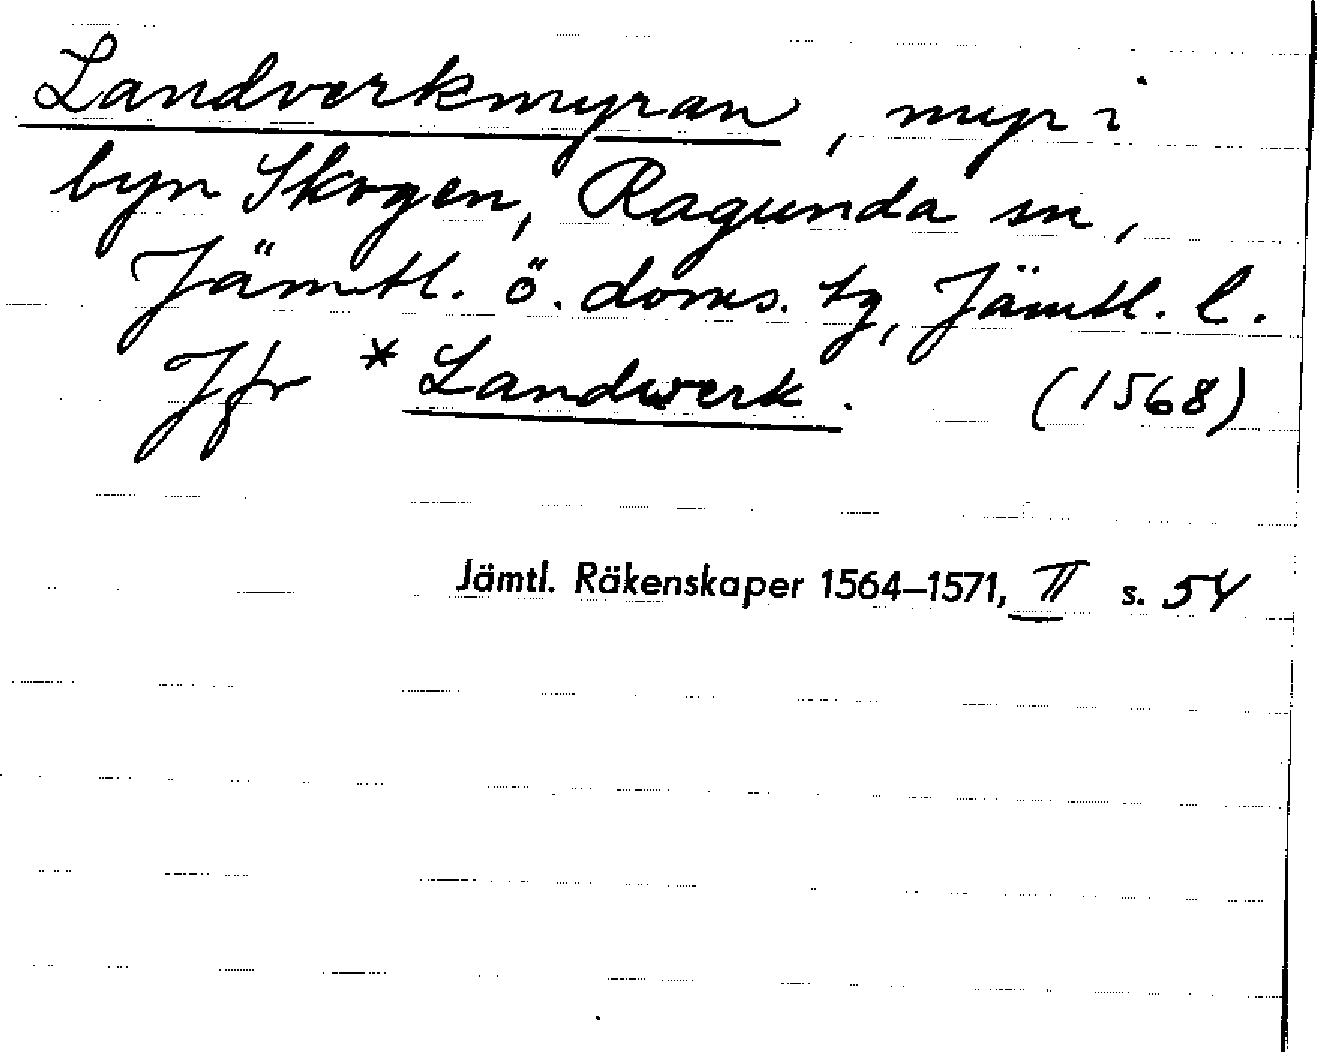 Landverkmyran, myr i
byn Skogen, Ragunda sn,
Jämtl. ö. doms. tg, Jämtl. l.
Jfr *Landwerk. (1568)
Jämtl. Räkenskaper 1564–1571, II s. 54